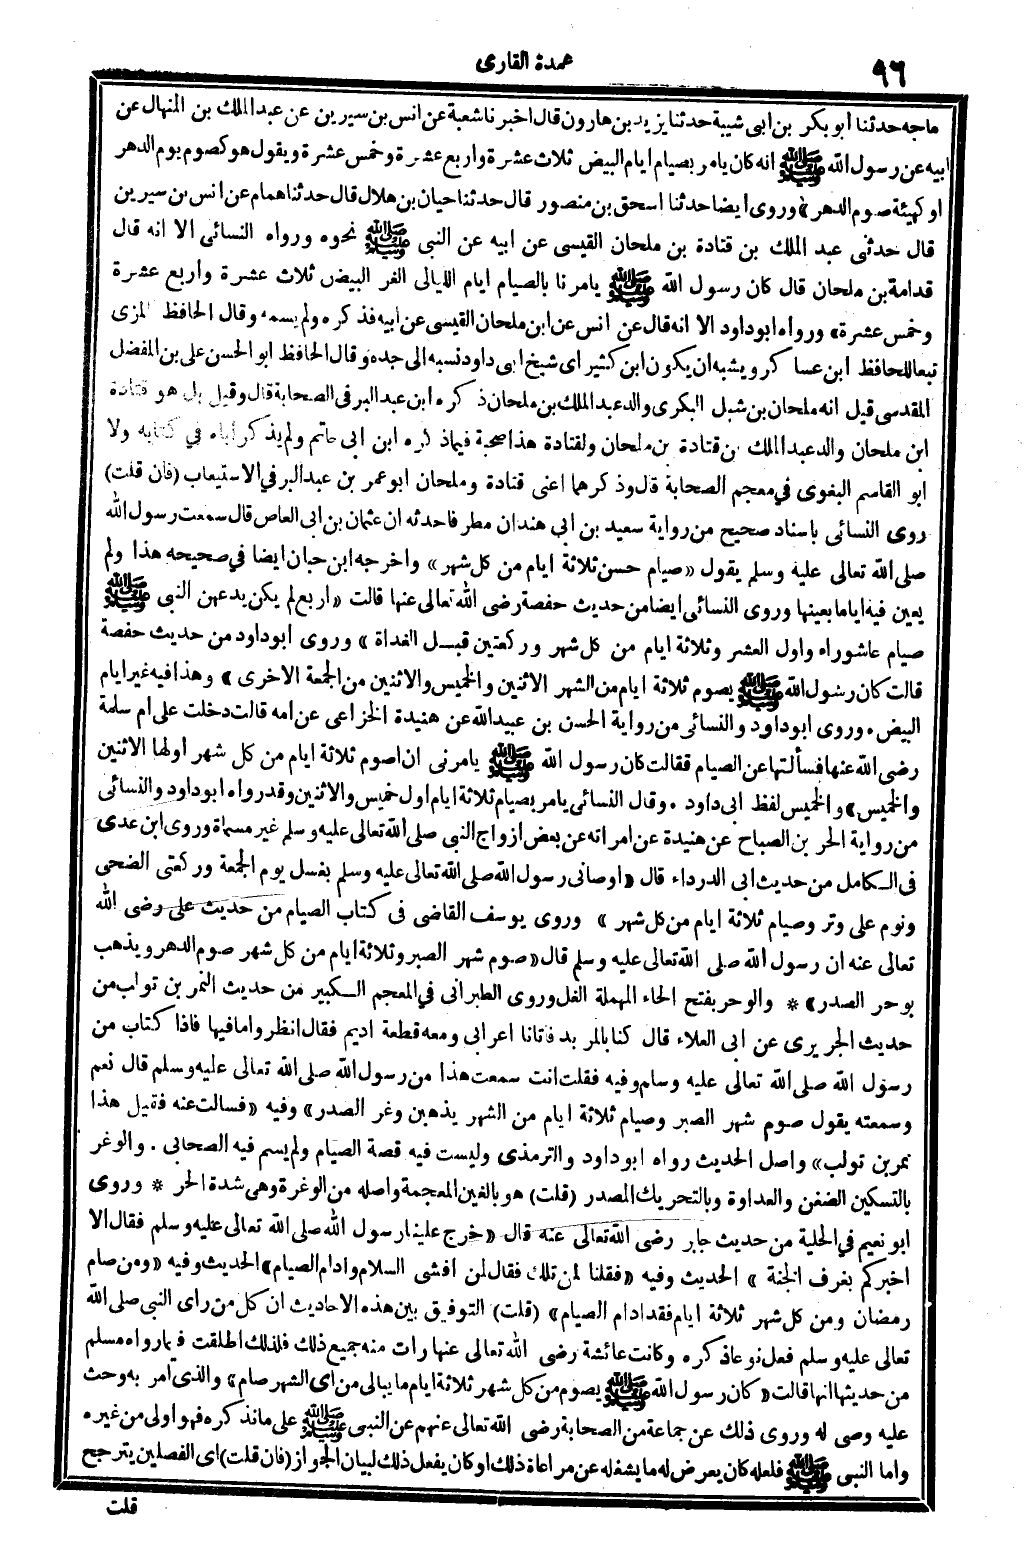 ٩٦
عمدة القارى
ماجه حدثنا أبو بكر بن ابى شيبة حدثنا يزيد بن هارون قال اخبرنا شعبة عن انس بن سيرين عن عبد الملك بن المنهال عن
ابيه عن رسول الله ﷺ انه كان يامر بصيام ايام البيض ثلاث عشرة واربع عشرة وخمس عشرة ويقول هو كصوم يوم الدهر
او كهيئة صوم الدهر» وروى ايضا حدثنا اسحق بن منصور قال حدثنا حيان بن هلال قال حدثنا همام عن انس بن سيرين
قال حدثنى عبد الملك بن قتادة بن ملحان القيسى عن ابيه عن النبى ﷺ نحوه ورواه النسائى الا انه قال
قدامة بن ملحان قال كان رسول الله ﷺ يامرنا بالصيام ايام الليالى الغر البيض ثلاث عشرة واربع عشرة
وخمس عشرة» ورواه ابو داود الا انه قال عن انس عن ابن ملحان القيسى عن ابيه فذكره ولم يسمه وقال الحافظ المزى
تبعا للحافظ ابن عساكر ويشبه ان يكون ابن كثير اى شيخ ابى داود نسبه الى جده وقال الحافظ ابو الحسن على بن المفضل
المقدسى قيل انه ملحان بن شبل البكرى والد عبد الملك بن ملحان ذكره ابن عبد البر فى الصحابة قال وقيل بل هو قتادة
ابن ملحان والد عبد الملك بن قتادة بن ملحان ولقتادة هذا صحبة فيما ذكره ابن ابى حاتم ولم يذكر اباه في كتابه ولا
ابو القاسم البغوى في معجم الصحابة قال وذكرهما اعنى قتادة وملحان ابو عمر بن عبد البر في الاستيعاب (فان قلت)
روى النسائى باسناد صحيح من رواية سعيد بن ابي هند ان مطرفا حدثه ان عثمان بن ابى العاص قال سمعت رسول الله
صلى الله تعالى عليه وسلم يقول «صيام حسن ثلاثة ايام من كل شهر» واخرجه ابن حبان ايضا في صحيحه هذا ولم
يعين فيه اياما بعينها وروى النسائى ايضا من حديث حفصة رضى الله تعالى عنها قالت «اربع لم يكن يدعهن النبى ﷺ
صيام عاشوراء واول العشر وثلاثة ايام من كل شهر وركعتين قبل الغداة» وروى ابو داود من حديث حفصة
قالت كان رسول الله ﷺ يصوم ثلاثة ايام من الشهر الاثنين والخميس والاثنين من الجمعة الاخرى» وهذا فيه غير ايام
البيض . وروى ابو داود والنسائى من رواية الحسن بن عبيد الله عن هنيدة الخزاعى عن امه قالت دخلت على ام سلمة
رضى الله عنها فسألتها عن الصيام فقالت كان رسول الله ﷺ يامرنى ان اصوم ثلاثة ايام من كل شهر اولها الاثنين
والخميس» والخميس لفظ ابى داود . وقال النسائى يامر بصيام ثلاثة ايام اول خميس والاثنين وقد رواه ابو داود والنسائى
من رواية الحر بن الصباح عن هنيدة عن امراته عن بعض ازواج النبى صلى الله تعالى عليه وسلم غير مسماة وروى ابن عدى
فى الكامل من حديث ابى الدرداء قال «اوصانى رسول الله صلى الله تعالى عليه وسلم بغسل يوم الجمعة وركعتى الضحى
ونوم على وتر وصيام ثلاثة ايام من كل شهر» وروى يوسف القاضى فى كتاب الصيام من حديث على رضى الله
تعالى عنه ان رسول الله صلى الله تعالى عليه وسلم قال «صوم شهر الصبر وثلاثة ايام من كل شهر صوم الدهر ويذهب
بوحر الصدر» * والوحر بفتح الحاء المهملة الغل وروى الطبرانى في المعجم الكبير من حديث النمر بن تولب من
حديث الجريرى عن ابى العلاء قال كنا بالمربد فاتانا اعرابى ومعه قطعة اديم فقال انظروا مافيها فاذا كتاب من
رسول الله صلى الله تعالى عليه وسلم وفيه فقلت انت سمعت هذا من رسول الله صلى الله تعالى عليه وسلم قال نعم
وسمعته يقول صوم شهر الصبر وصيام ثلاثة ايام من الشهر يذهبن وغر الصدر» وفيه «فسالت عنه فقيل هذا
نمر بن تولب» واصل الحديث رواه ابو داود والترمذى وليست فيه قصة الصيام ولم يسم فيه الصحابى . والوغر
بالتسكين الضغن والعداوة وبالتحريك المصدر (قلت) هو بالغين المعجمة واصله من الوغرة وهى شدة الحر * وروى
ابو نعيم في الحلية من حديث جابر رضى الله تعالى عنه قال «خرج علينا رسول الله صلى الله تعالى عليه وسلم فقال الا
اخبركم بغرف الجنة» الحديث وفيه «فقلنا لمن تلك فقال لمن افشى السلام وادام الصيام» الحديث وفيه «ومن صام
رمضان ومن كل شهر ثلاثة ايام فقد ادام الصيام» (قلت) التوفيق بين هذه الاحاديث ان كل من راى النبى صلى الله
تعالى عليه وسلم فعل نوعا ذكره وكانت عائشة رضى الله تعالى عنها رات منه جميع ذلك فلذلك اطلقت فيما رواه مسلم
من حديثها انها قالت «كان رسول الله ﷺ يصوم من كل شهر ثلاثة ايام ما يبالى من اى الشهر صام» والذى امر به وحث
عليه وصى له وروى ذلك عن جماعة من الصحابة رضى الله تعالى عنهم عن النبى ﷺ على مانذكره فهو اولى من غيره
واما النبى ﷺ فلعله كان يعرض له ما يشغله عن مراعاة ذلك او كان يفعل ذلك لبيان الجواز (فان قلت) اى الفصلين يترجح
قلت